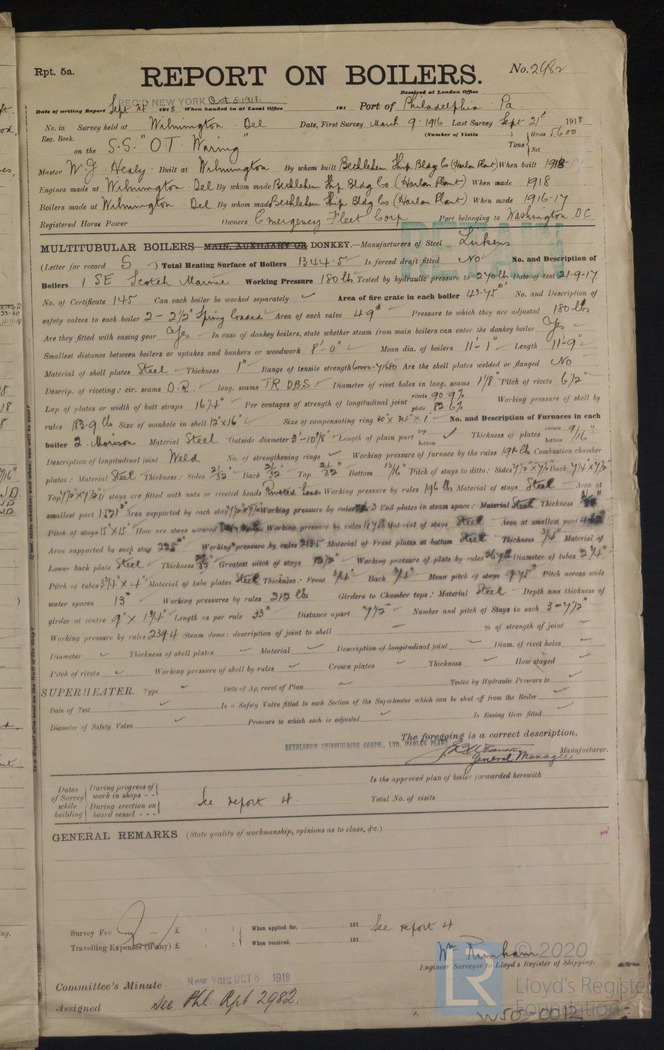 Rpt. 5a.
REPORT ON BOILERS.
No. 2982
Received at London Office
REC'D NEW YORK Oct. 5. 1918.
Date of writing Report Sept 24 1918 When handed in at Local Office 191 Port of Philadelphia Pa
No. in Survey held at Wilmington Del Date, First Survey March 9 1916 Last Survey Sept 21st 1918
Reg. Book. (Number of Visits) Gross 5600
on the S.S. "O.T. Waring" Tons Net
Master W J Healy Built at Wilmington By whom built Bethlehem Ship Bldg Co (Harlan Plant) When built 1918
Engines made at Wilmington Del By whom made Bethlehem Ship Bldg Co (Harlan Plant) When made 1918
Boilers made at Wilmington Del By whom made Bethlehem Ship Bldg Co (Harlan Plant) When made 1916-17
Registered Horse Power Owners Emergency Fleet Corp Port belonging to Washington D.C.
RETAIN
MULTITUBULAR BOILERS MAIN, AUXILIARY OR DONKEY.—Manufacturers of Steel Lukens
(Letter for record S) Total Heating Surface of Boilers 1344.5 Is forced draft fitted No No. and Description of
Boilers 1 SE Scotch Marine Working Pressure 180 lbs Tested by hydraulic pressure to 270 lbs Date of test 21-9-17
No. of Certificate 145 Can each boiler be worked separately ✓ Area of fire grate in each boiler 43.75 No. and Description of
safety valves to each boiler 2 - 2½" Spring loaded Area of each valve 4.9 Pressure to which they are adjusted 180 lbs
Are they fitted with easing gear Yes In case of donkey boilers, state whether steam from main boilers can enter the donkey boiler Yes
Smallest distance between boilers or uptakes and bunkers or woodwork 8'-0" Mean dia. of boilers 11'-1" Length 11'-9"
Material of shell plates Steel Thickness 1" Range of tensile strength Are the shell plates welded or flanged No
Descrip. of riveting: cir. seams D.R. long. seams T.R.D.B.S. Diameter of rivet holes in long. seams 1 1/8 Pitch of rivets 6 1/2"
Lap of plates or width of butt straps 16 3/4" Per centages of strength of longitudinal joint rivets 90.9% plate 82.6% Working pressure of shell by
rules 183.9 lbs Size of manhole in shell 12"x16" Size of compensating ring No. and Description of Furnaces in each
boiler 2 Morison Material Steel Outside diameter 3'-10 7/8" Length of plain part top bottom ✓ Thickness of plates crown bottom 9/16"
Description of longitudinal joint Weld No. of strengthening rings ✓ Working pressure of furnace by the rules Combustion chamber
plates: Material Steel Thickness: Sides 21/32" Back 21/32" Top 21/32" Bottom 13/16" Pitch of stays to ditto: Sides Back
Top If stays are fitted with nuts or riveted heads Riveted heads Working pressure by rules 196 lbs Material of stays Steel Area at
smallest part Area supported by each stay Working pressure by rules End plates in steam space: Material Steel Thickness
Pitch of stays 15"x15" How are stays secured Working pressure by rules Material of stays Steel Area at smallest part
Area supported by each stay 225" Working pressure by rules Material of Front plates at bottom Steel Thickness 3/4" Material of
Lower back plate Steel Thickness Greatest pitch of stays Working pressure of plate by rules Diameter of tubes 2 3/4"
Pitch of tubes 3 3/4" x 4" Material of tube plates Steel Thickness: Front 3/4" Back 3/4" Mean pitch of stays Pitch across wide
water spaces 13" Working pressures by rules 212 lbs Girders to Chamber tops: Material Steel Depth and thickness of
girder at centre 9" x 1 3/4" Length as per rule 33" Distance apart 7 1/2" Number and pitch of Stays in each 3 - 7 1/2"
Working pressure by rules 239.4 Steam dome: description of joint to shell ✓ % of strength of joint ✓
Diameter ✓ Thickness of shell plates ✓ Material ✓ Description of longitudinal joint ✓ Diam. of rivet holes ✓
Pitch of rivets ✓ Working pressure of shell by rules ✓ Crown plates ✓ Thickness ✓ How stayed ✓
SUPERHEATER. Type ✓ Date of Approval of Plan ✓ Tested by Hydraulic Pressure to ✓
Date of Test ✓ Is a Safety Valve fitted to each Section of the Superheater which can be shut off from the Boiler ✓
Diameter of Safety Valve ✓ Pressure to which each is adjusted ✓ Is Easing Gear fitted ✓
The foregoing is a correct description,
BETHLEHEM SHIPBUILDING CORP'N., LTD. HARLAN PLANT Manufacturer.
General Manager
Is the approved plan of boiler forwarded herewith
Dates of Survey while building During progress of work in shops - - During erection on board vessel - - - See report 4 Total No. of visits
GENERAL REMARKS (State quality of workmanship, opinions as to class, &c.)
Survey Fee £ : : When applied for, 191 See report 4
Travelling Expenses (if any) £ : : When received, 191
Engineer Surveyor to Lloyd's Register of Shipping.
Committee's Minute New York OCT 8 1918
Assigned See Phl. Rpt 2982.
© 2020
LR Lloyd's Register
Foundation
W50-0012